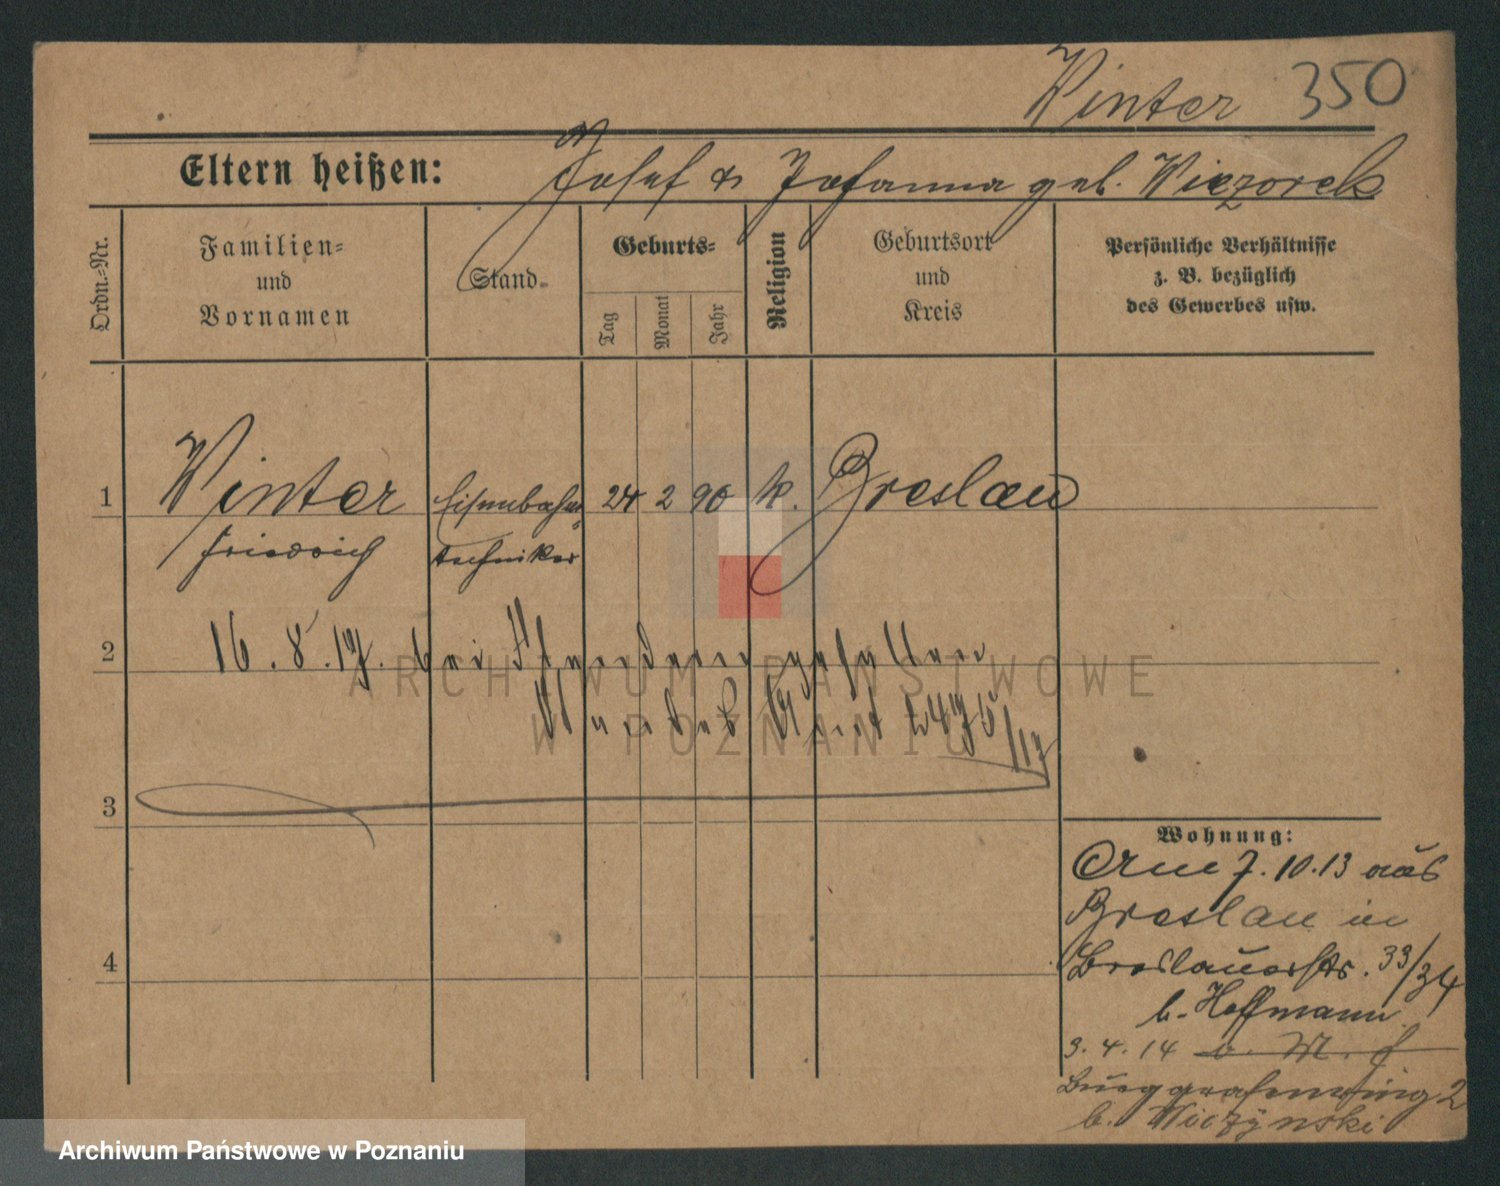 Winter 350
Eltern heißen: Josef & Johanna geb. Wiezorek
Ordn.-Nr.
Familien-
und
Vornamen
Stand
Geburts-
Tag
Monat
Jahr
Religion
Geburtsort
und
Kreis
Persönliche Verhältnisse
z. B. bezüglich
des Gewerbes usw.
1 Winter Eisenbahn- 24 2 90 k. Breslau
Friedrich techniker
2 16. 8. 17. bei Flandern gefallen
3
4
Wohnung:
Am 7. 10. 13 aus
Breslau in
Breslauerstr. 33/34
b. Hoffmann
3. 4. 14
Burggrafenring 2
b. Wiczynski
ARCHIWUM PAŃSTWOWE
W POZNANIU
Archiwum Państwowe w Poznaniu